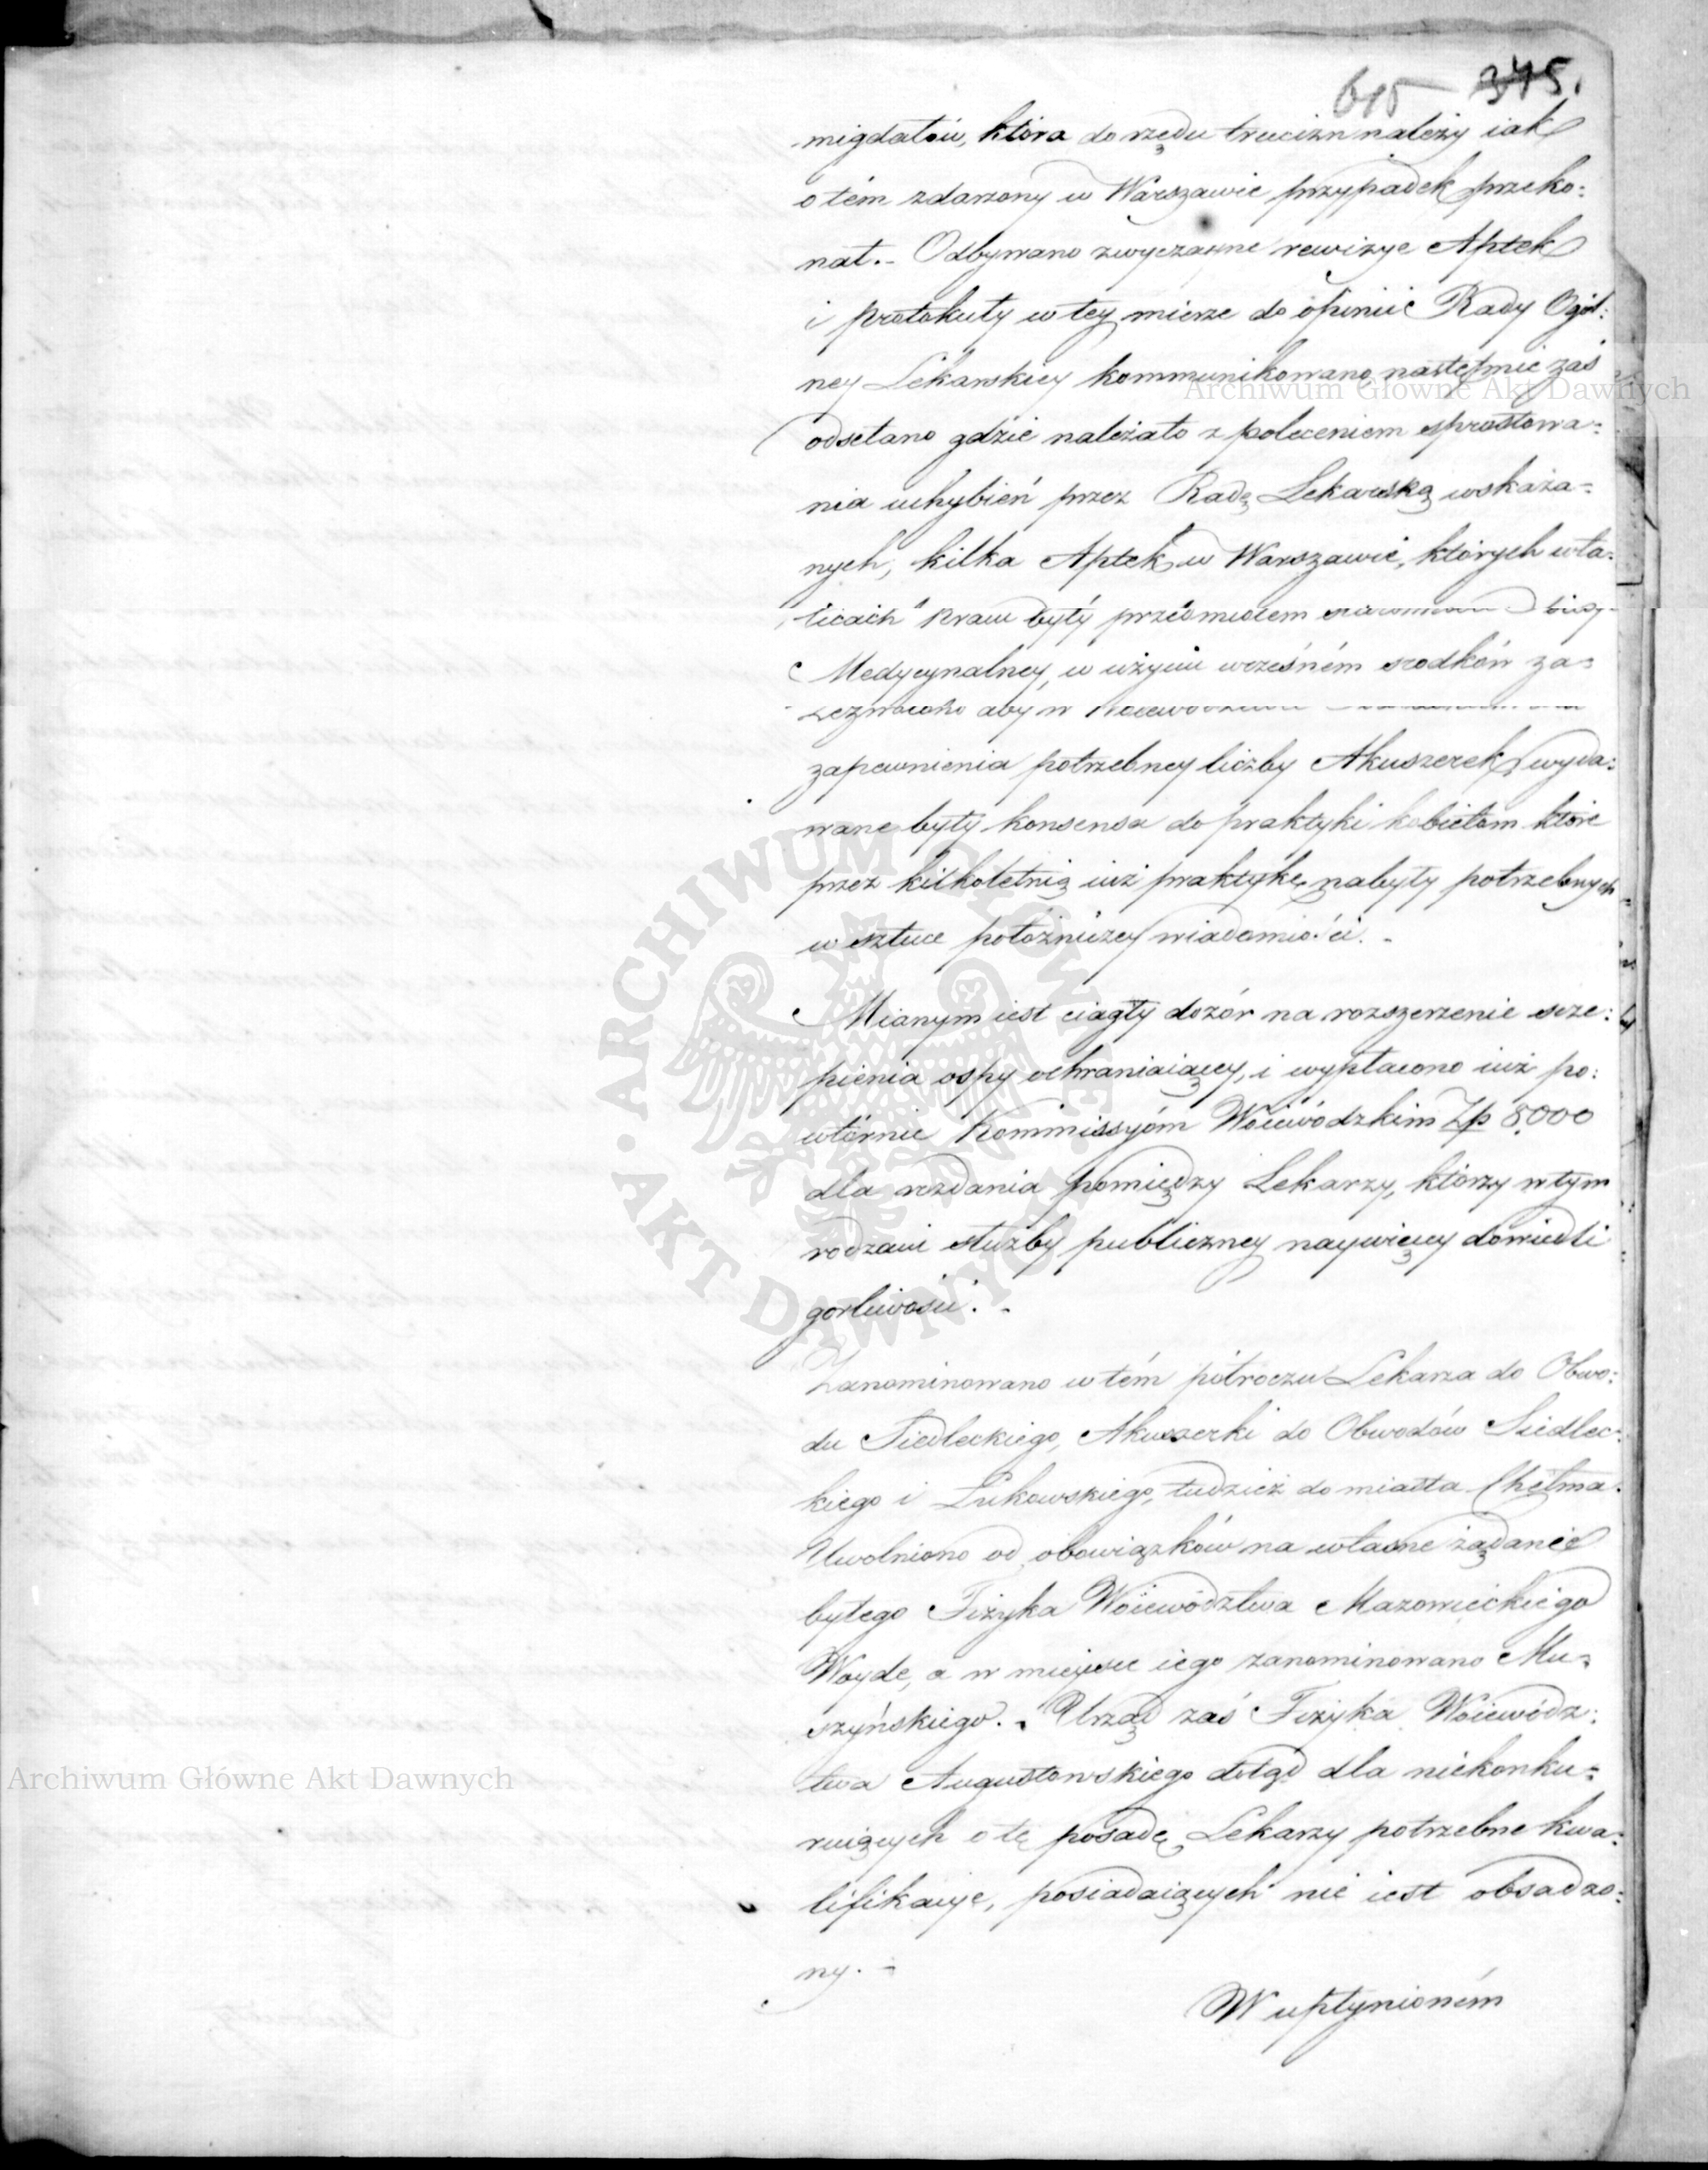 615 345.
migdałów, która do rzędu trucizn należy iak
o tém zdarzony w Warszawie przypadek przeko:
nał. - Odbywano zwyczayne rewizye Aptek
i protokuły w tey mierze do opinii Rady Ogól:
ney Lekarskiey kommunikowano, następnie zaś
Archiwum Główne Akt Dawnych
odsełano gdzie należało z poleceniem sprostowa:
nia uchybień przez Radę Lekarską wskaza:
nych, kilka Aptek w Warszawie, których wła:
licach Kraiu były przedmiotem
Medycynalney, w użyciu wcześném srodków za:
aby w
zapewnienia potrzebney liczby Akuszerek, wyda:
wane były konsensa do praktyki kobietom które
przez kilkoletnią iuż praktykę nabyły potrzebnych
w sztuce położniczey wiadomości. -
Mianym iest ciągły dozór na rozszerzenie szcze:
pienia ospy ochraniaiącey, i wypłacono iuż po:
wtórnie Kommissyóm Woiewódzkim Zp 8,000
dla rozdania pomiędzy Lekarzy, którzy w tym
rodzaiu służby publiczney naywięcey dowiedli
gorliwości. -
Zanominowano w tém półroczu Lekarza do Obwo:
du Siedleckiego, Akuszerki do Obwodów Siedlec:
kiego i Łukowskiego, tudzież do miasta Chełma.
Uwolniono od obowiązków na własne żądanie
byłego Fizyka Woiewództwa Mazowieckiego
Woyde, a w mieysce iego zanominowano Mu:
szyńskiego. - Urząd zaś Fizyka Woiewódz:
twa Augustowskiego dotąd dla niekonku:
Archiwum Główne Akt Dawnych
ruiących o tę posadę Lekarzy potrzebne kwa:
lifikacye, posiadaiących nie iest obsadzo:
ny. -
W upłynioném
ARCHIWUM GŁÓWNE AKT DAWNYCH